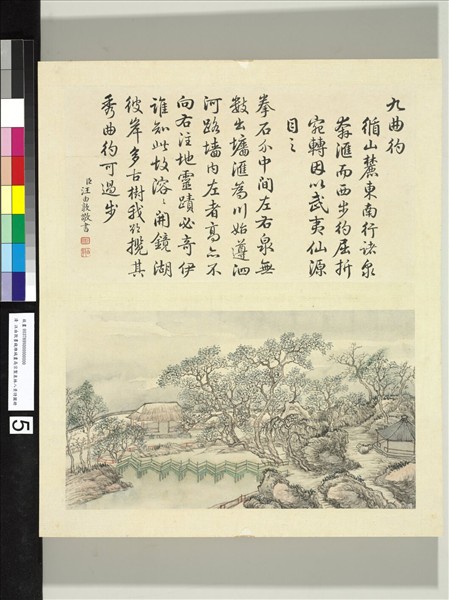 九曲彴
循山麓東南行諸泉
奔滙而西步彴屈折
宛轉因以武夷仙源
目之
拳石介中間左右泉無
數出墻滙為川始遵泗
河路墻内左者高亦不
向右注地靈蹟必奇伊
誰知此故溶〻開鏡湖
彼岸多古樹我欲攬其
秀曲彴可過步
臣汪由敦敬書
5